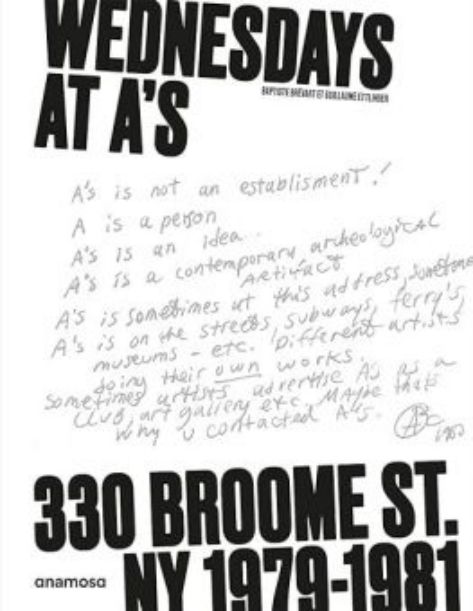 WEDNESDAYS
BAPTISTE BRÉVART ET GUILLAUME ETTLINGER
AT A'S
A's is not an establisment!
A is a person
A's is an idea..
A's is a contemporary archeological
Artifact
A's is sometimes at this address, sometimes
A's is on the streets, subways, ferry's,
museums - etc. Different artists
doing their own works.
Sometimes artists advertise A's as a
Club, art gallery etc. Maybe that's
why u contacted A's.
330 BROOME ST.
anamosa
NY 1979-1981